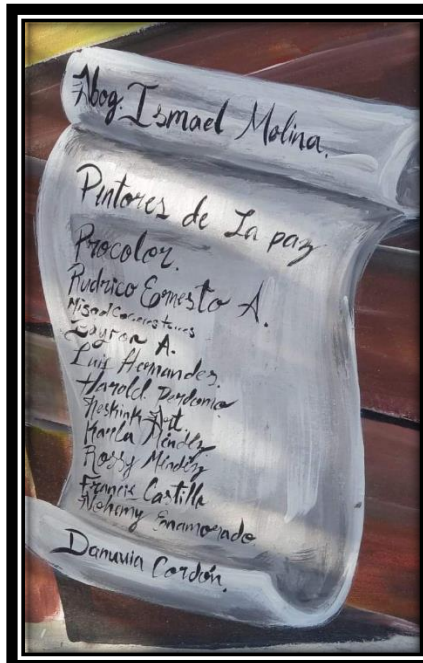 Abog. Ismael Molina.
Pintores de La paz
Procolor.
Rudrico Ernesto A.
Misael
Zayron A.
Luis Hernandez.
Harold Perdomo
Art
Karla Méndez
Rossy Méndez
Francis Castillo
Nohemy Enamorado
Danuvia Cordón.